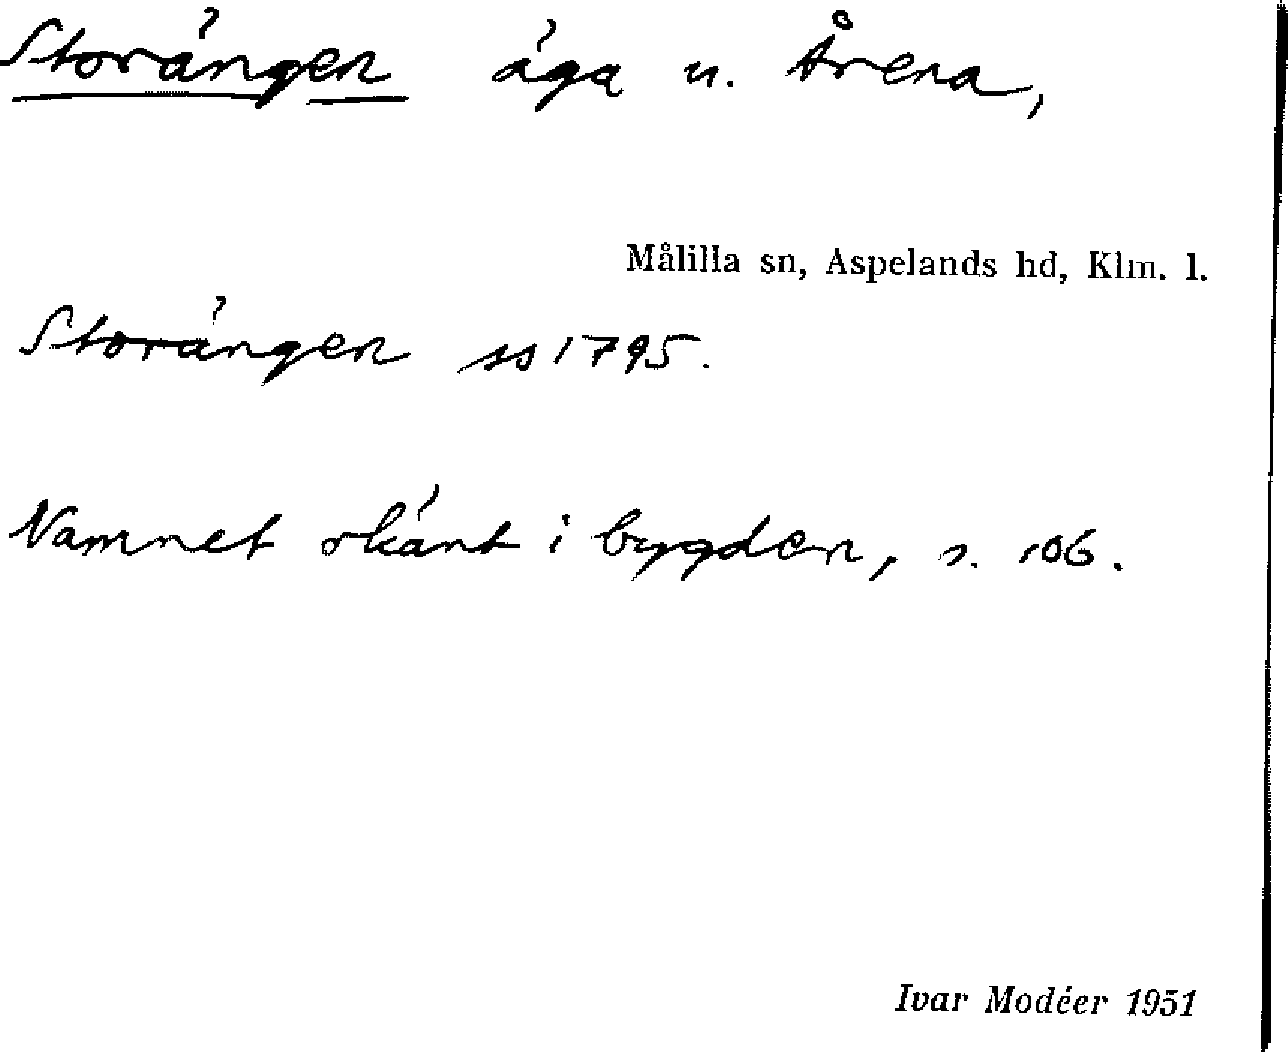 Storängen äga u. Årena,
Målilla sn, Aspelands hd, Klm. l.
Storängen ss 1795.
Namnet okänt i bygden, s. 106.
Ivar Modéer 1951